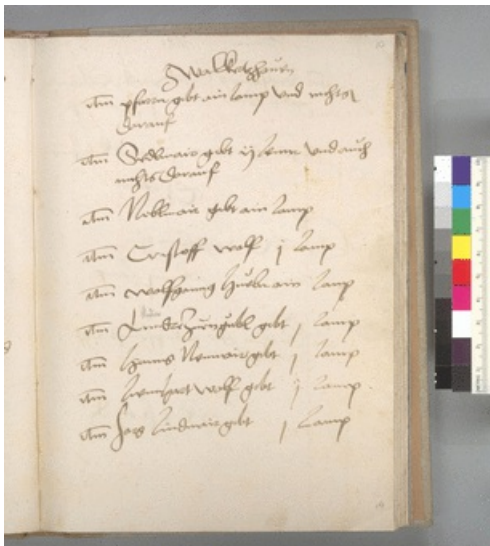 Item pfarrer gibt ain lamp und nichts
darauf
Item Sedlmair gibt ij lemer und auch
nichts darauf
Item Koblmair gibt ain lamp
Item Cristoff wolf j lamp
Item wolfgang Hueber ain lamp
Item gibt j lamp
Item Hanns Neumair gibt j lamp
Item Lienhart wolf gibt j lamp
Item Jorg Lindmair gibt j lamp